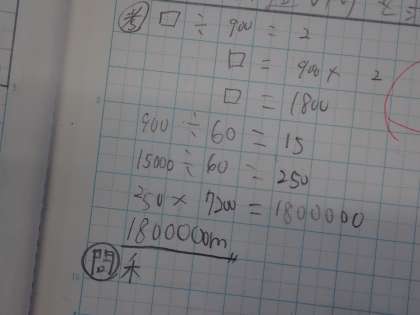 考 □ ÷ 900 = 2
□ = 900 × 2
□ = 1800
900 ÷ 60 = 15
15000 ÷ 60 = 250
250 × 7200 = 1800000
1800000m
問 禾